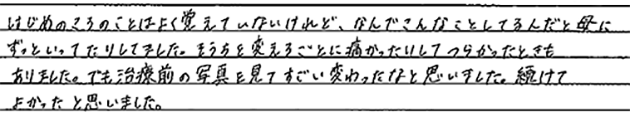 はじめのころのことはよく覚えていないけれど、なんでこんなことしてるんだと母に
ずっといってたりしてました。そうちを変えるごとに痛かったりしてつらかったときも
ありました。でも治療前の写真を見てすごい変わったなと思いました。続けて
よかったと思いました。